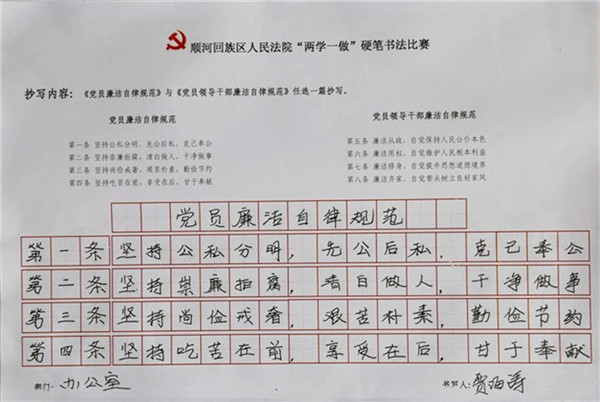 顺河回族区人民法院“两学一做”硬笔书法比赛
抄写内容：《党员廉洁自律规范》与《党员领导干部廉洁自律规范》任选一篇抄写。
党员廉洁自律规范
第一条 坚持公私分明，先公后私，克己奉公
第二条 坚持崇廉拒腐，清白做人，干净做事
第三条 坚持尚俭戒奢，艰苦朴素，勤俭节约
第四条 坚持吃苦在前，享受在后，甘于奉献
党员领导干部廉洁自律规范
第五条 廉洁从政，自觉保持人民公仆本色
第六条 廉洁用权，自觉维护人民根本利益
第七条 廉洁修身，自觉提升思想道德境界
第八条 廉洁齐家，自觉带头树立良好家风
党员廉洁自律规范
第一条坚持公私分明，先公后私，克己奉公
第二条坚持崇廉拒腐，清白做人，干净做事
第三条坚持尚俭戒奢，艰苦朴素，勤俭节约
第四条坚持吃苦在前，享受在后，甘于奉献
部门：办公室
书写人：贾海涛